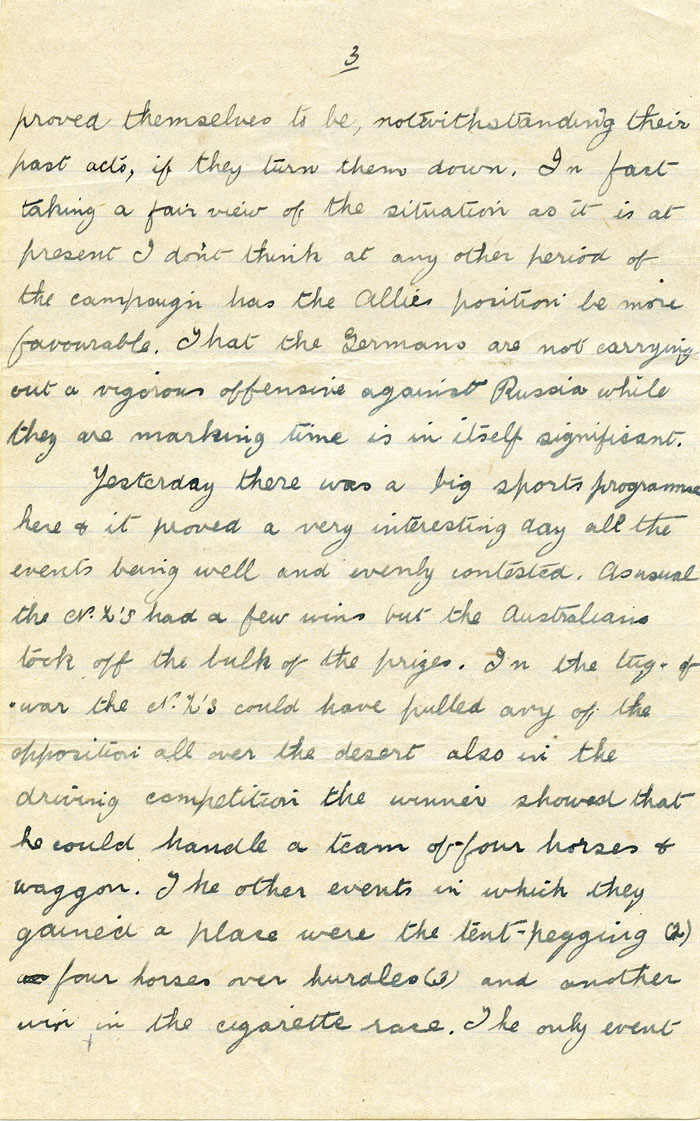 3
proved themselves to be, notwithstanding their
past acts, if they turn them down. In fact
taking a fair view of the situation as it is at
present I don't think at any other period of
the campaign has the Allies position be more
favourable. That the Germans are not carrying
out a vigorous offensive against Russia while
they are marking time is in itself significant.
Yesterday there was a big sports programme
here & it proved a very interesting day all the
events being well and evenly contested. As usual
the N.Z's had a few wins but the Australians
took off the bulk of the prizes. In the tug-of
-war the N.Z's could have pulled any of the
opposition all over the desert also in the
driving competition the winner showed that
he could handle a team of four horses &
waggon. The other events in which they
gained a place were the tent-pegging (2)
four horses over hurdles (3) and another
win in the cigarette race. The only event